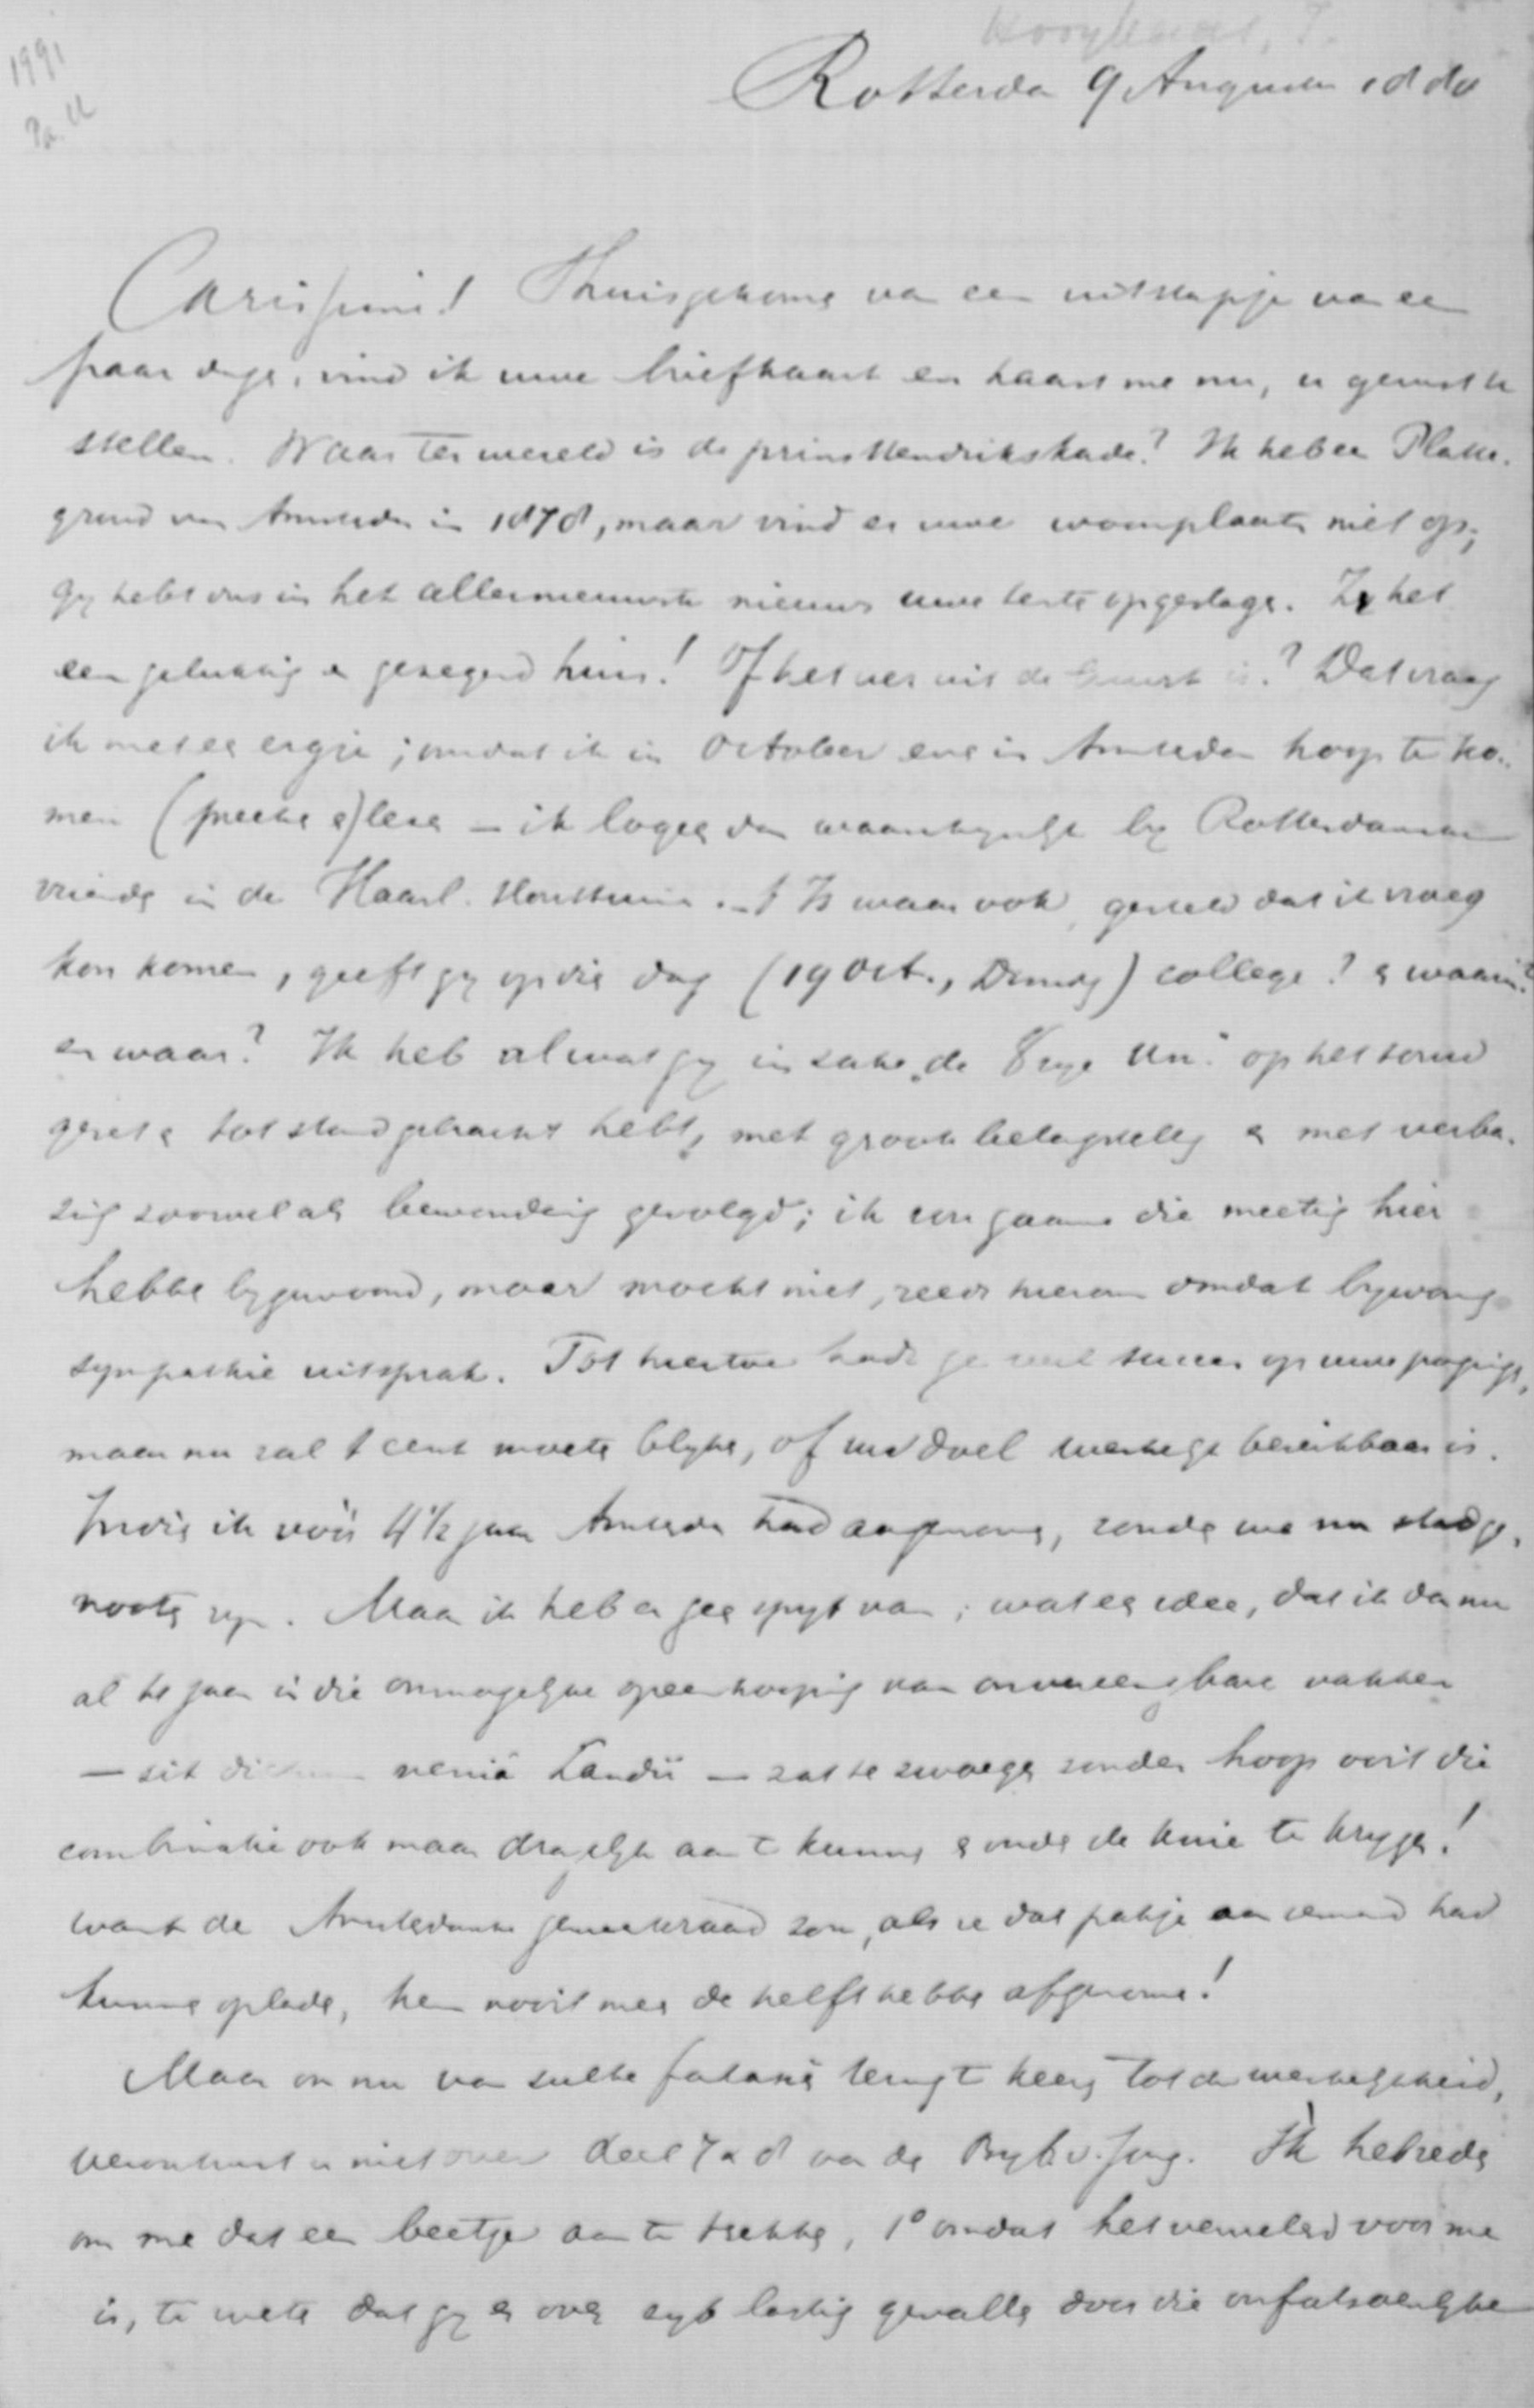 1991
Rotterda 9 Augustus 1880
Carissime! Thuisgekome van een uitstapje van een
paar dage, vind ik uwe briefkaart en haast me nu, u gerust te
stellen. Waar ter wereld is de prins Hendrikskade? Ik heb een Platte-
grond van Amsterdam in 1878, maar vind er uwe woonplaats niet op;
gy hebt dus in het allernieuwste nieuws uwe tente opgeslage. Zy het
een gelukkig en gezegend huis! Of het ver uit de buurt is? Dat vraag
ik met een ergje; omdat ik in October eve in Amsterdam hoop te ko-
men (preeke en) leze – ik logeer dan waarschynlyk by Rotterdamsche
vriende in de Haarl. Houttuine. – 't Is waar ook, gesteld dat ik vroeg
kon komen, geeft gy op die dag (19 Oct., Dinsdag) college? en waarin?
en waar? Ik heb al wat gy in zake „de Vrye Un." op het touw
gezet en tot stand gebracht hebt, met groote belangstelling en met verba-
zing zoowel als bewondering gevolgd; ik zou gaarne die meeting hier
hebbe bygewoond, maar mocht niet, reeds hierom omdat bywoning
sympathie uitsprak. Tot hiertoe hadt ge veel succes op uwe poginge,
maar nu zal 't eerst moete blyke, of uw doel werkelyk bereikbaar is.
Indien ik vóór 4½ jaar Amsterdam had aangenome, zonde we nu stadge-
noote zyn. Maar ik heb er gee spyt van; wat ee idee, dat ik dan nu
al te jaar in die onmogelyke opeenhooping van onvereenigbare vakken
– sit dictum venia Landii – zat te zwoege zonder hoop ooit die
combinatie ook maar dragelyk aan te kunne en onder de knie te krygen!
want de Amsterdamsche gemeenteraad zou, als ze dat pakje aan iemand had
kunne oplade, hem nooit meer de helft hebbe afgenome!
Maar om nu van zulke fatasie terug te keere tot de werkelykheid,
verontrust u niet over deel 7 & 8 van de Byb. v. Jong. Ik heb rede
om me dat een beetje aan te trekke, 1° omdat het vervelend voor me
is, te wete dat gy er over zyt lastig gevalle door die onfatsoenlyke